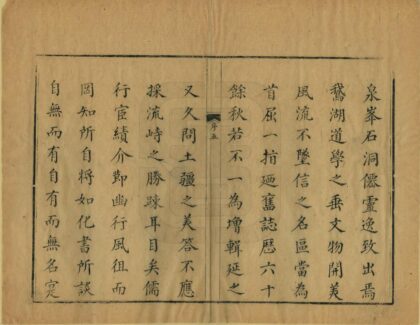 泉峯石洞儇靈逸致出焉
鵝湖道學之垂文物開美
風流不墜信之名區當為
首屈一指廼舊誌歷六十
餘秋若不一為增輯延之
序五
又久問土疆之美答不應
採流峙之勝踈耳目矣儒
行宦績介節幽行風徂而
罔知所自將如化書所談
自無而有自有而無名寔